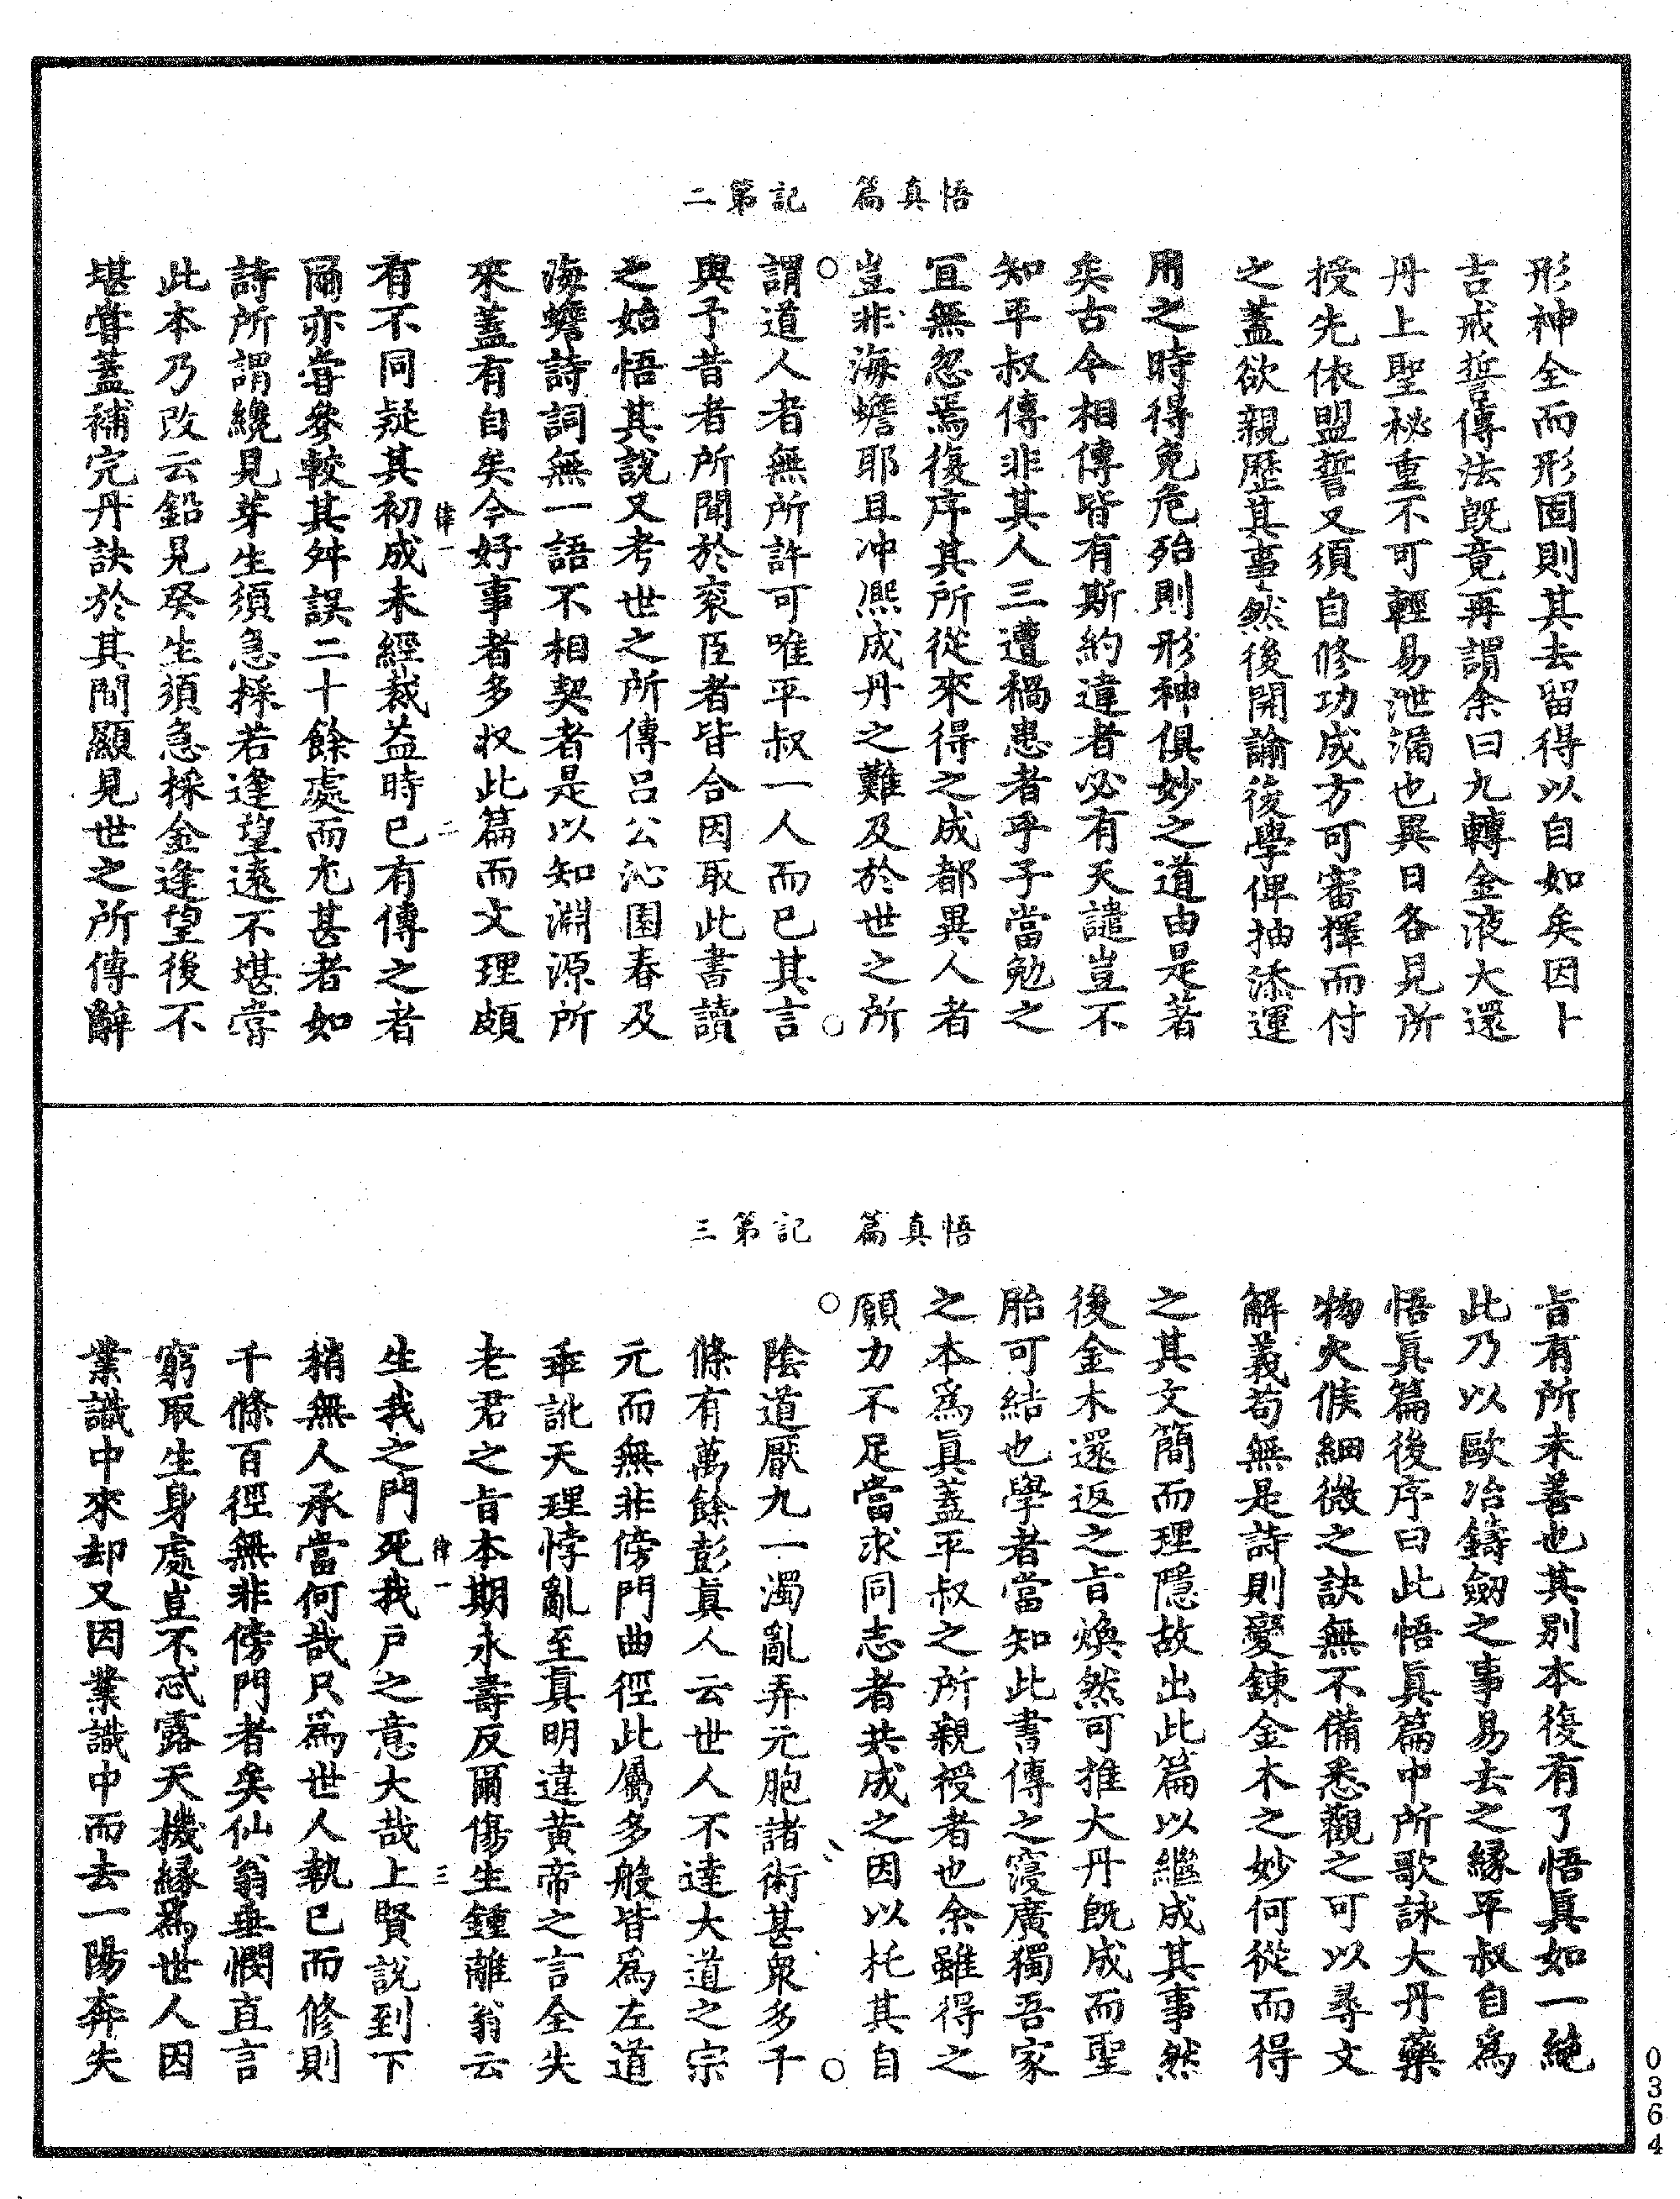 悟真篇　記第二
形神全而形固則其去留得以自如矣因卜
吉戒誓傳法旣竟再謂余曰九轉金液大還
丹上聖秘重不可輕易泄漏也異日各見所
授先依盟誓又須自修功成方可審擇而付
之蓋欲親歷其事然後開諭後學俾抽添運
用之時得免危殆則形神俱妙之道由是著
矣古今相傳皆有斯約違者必有天譴豈不
知平叔傳非其人三遭禍患者乎子當勉之
冝無忽焉復序其所從來得之成都異人者
豈非海蟾耶且冲熈成丹之難及於世之所
謂道人者無所許可唯平叔一人而已其言
與予昔者所聞於衮臣者皆合因取此書讀
之始悟其說又考世之所傳呂公沁園春及
海蟾詩詞無一語不相契者是以知淵源所
來蓋有自矣今好事者多収此篇而文理頗
律一　二
有不同疑其初成未經裁益時已有傳之者
爾亦嘗參較其舛誤二十餘處而尤甚者如
詩所謂纔見芽生須急採若逢望遠不堪嘗
此本乃改云鉛見癸生須急採金逢望後不
堪嘗蓋補完丹訣於其間顯見世之所傳辭
悟真篇　記第三
旨有所未善也其別本復有了悟眞如一絶
此乃以歐冶鑄劒之事易去之縁平叔自爲
悟眞篇後序曰此悟眞篇中所歌詠大丹藥
物火候細微之訣無不備悉觀之可以尋文
解義苟無是詩則變錬金木之妙何從而得
之其文簡而理隱故出此篇以繼成其事然
後金木還返之旨煥然可推大丹旣成而聖
胎可結也學者當知此書傳之寖廣獨吾家
之本爲眞蓋平叔之所親授者也余雖得之
願力不足當求同志者共成之因以托其自
陰道厭九一濁亂弄元胞諸術甚衆多千
條有萬餘彭眞人云世人不達大道之宗
元而無非傍門曲徑此屬多般皆爲左道
乖訛天理悖亂至眞明違黃帝之言全失
老君之旨本期永壽反爾傷生鍾離翁云
律一　三
生我之門死我戸之意大哉上賢説到下
稍無人承當何哉只爲世人執已而修則
千條百徑無非傍門者矣仙翁垂憫直言
窮取生身處豈不忒露天機縁爲世人因
業識中來却又因業識中而去一陽奔失
0364